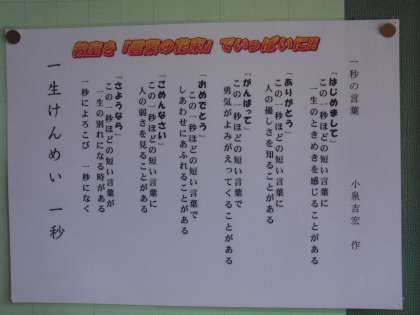 教室を『言葉の花束』でいっぱいに!!
一秒の言葉　小泉吉宏 作
「はじめまして」
この一秒ほどの短い言葉に
一生のときめきを感じることがある
「ありがとう」
この一秒ほどの短い言葉に
人の優しさを知ることがある
「がんばって」
この一秒ほどの短い言葉で
勇気がよみがえってくることがある
「おめでとう」
この一秒ほどの短い言葉で
しあわせにあふれることがある
「ごめんなさい」
この一秒ほどの短い言葉に
人の弱さを見ることがある
「さようなら」
この一秒ほどの短い言葉が
一生の別れになる時がある
一秒によろこび　一秒になく
一生けんめい　一秒